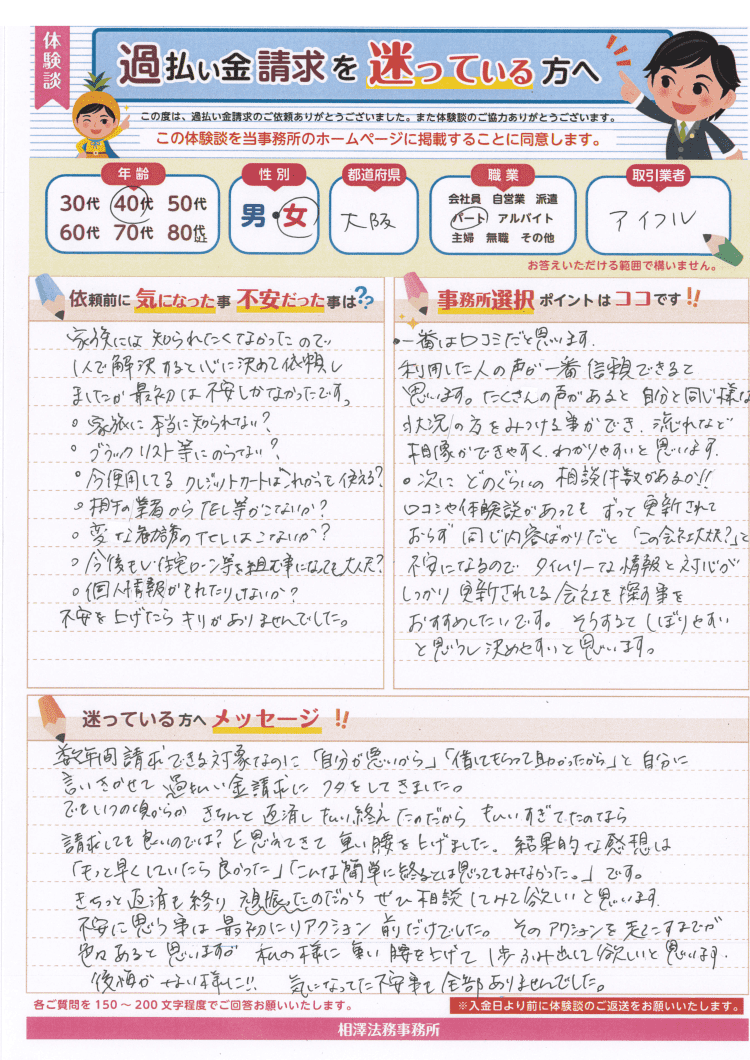 体験談
過払い金請求を迷っている方へ
この度は、過払い金請求のご依頼ありがとうございました。また体験談のご協力ありがとうございます。
この体験談を当事務所のホームページに掲載することに同意します。
年齢
30代 40代 50代
60代 70代 80代以上
性別
男・女
都道府県
大阪
職業
会社員 自営業 派遣
パート アルバイト
主婦 無職 その他
取引業者
アイフル
お答えいただける範囲で構いません。
依頼前に気になった事 不安だった事は??
家族には知られたくなかったので
1人で解決すると心に決めて依頼し
ましたが最初は不安しかなかったです。
○家族に本当に知られない?
○ブラックリスト等にのらない?
○今使用してるクレジットカードはこれからも使える?
○相手の業者からTEL等がこないか?
○変な勧誘のTELはこないか?
○今後もし住宅ローン等を組む事になっても大丈夫?
○個人情報がもれたりしないか?
不安を上げたらキリがありませんでした。
事務所選択ポイントはココです!!
・一番は口コミだと思います.
利用した人の声が一番信頼できると
思います。たくさんの声があると自分と同じ様な
状況の方をみつける事ができ、流れなど
想像ができやすく、わかりやすいと思います.
○次にどのぐらいの相談件数があるか!!
口コミや体験談があってもずっと更新されて
おらず同じ内容ばかりだと「この会社大丈夫?」と
不安になるのでタイムリーな情報と対応が
しっかり更新されてる会社を探す事を
おすすめしたいです。そうするとしぼりやすい
と思うし決めやすいと思います。
迷っている方へメッセージ!!
数年間請求できる対象なのに「自分が悪いから」「借してもらって助かったから」と自分に
言いきかせて過払い金請求にフタをしてきました。
でもいつの頃からかきちんと返済し払い終えたのだから払いすぎてたのなら
請求しても良いのでは?と思えてきて重い腰を上げました。結果的な感想は
「もっと早くしていたら良かった」「こんな簡単に終るとは思ってもみなかった。」です。
きちっと返済も終り頑張ったのだからぜひ相談してみて欲しいと思います.
不安に思う事は最初にリアクション前だけでした。そのアクションを起こすまでが
色々あると思いますが私の様に重い腰を上げて1歩ふみ出して欲しいと思います.
後悔がない様に!! 気になってた不安事も全部ありませんでした。
各ご質問を150~200文字程度でご回答お願いいたします。
※入金日より前に体験談のご返送をお願いいたします。
相澤法務事務所